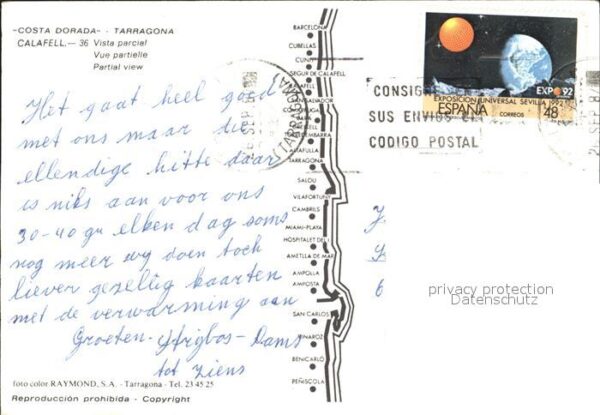 -COSTA DORADA- - TARRAGONA
CALAFELL.- 36 Vista parcial
Vue partielle
Partial view
Het gaat heel goed
met ons maar die
ellendige hitte daar
is niks aan voor ons
30-40 gr elken dag soms
nog meer wy doen toch
liever gezellig kaarten
met de verwarming aan
Groeten
tot ziens
foto color RAYMOND, S.A. - Tarragona - Tel. 23 45 25
Reproducción prohibida - Copyright
BARCELONA
CUBELLAS
CUNIT
SEGUR DE CALAFELL
TARRAGONA
SALOU
VILAFORTUNY
CAMBRILS
MIAMI-PLAYA
HOSPITALET DEL I.
AMETLLA DE MAR
AMPOLLA
AMPOSTA
SAN CARLOS
VINAROZ
BENICARLÓ
PEÑISCOLA
TARRAGONA
EXPO 92
EXPOSICION UNIVERSAL SEVILLA 1992
ESPAÑA
CORREOS
48
SUS ENVIOS EL
CODIGO POSTAL
privacy protection
Datenschutz